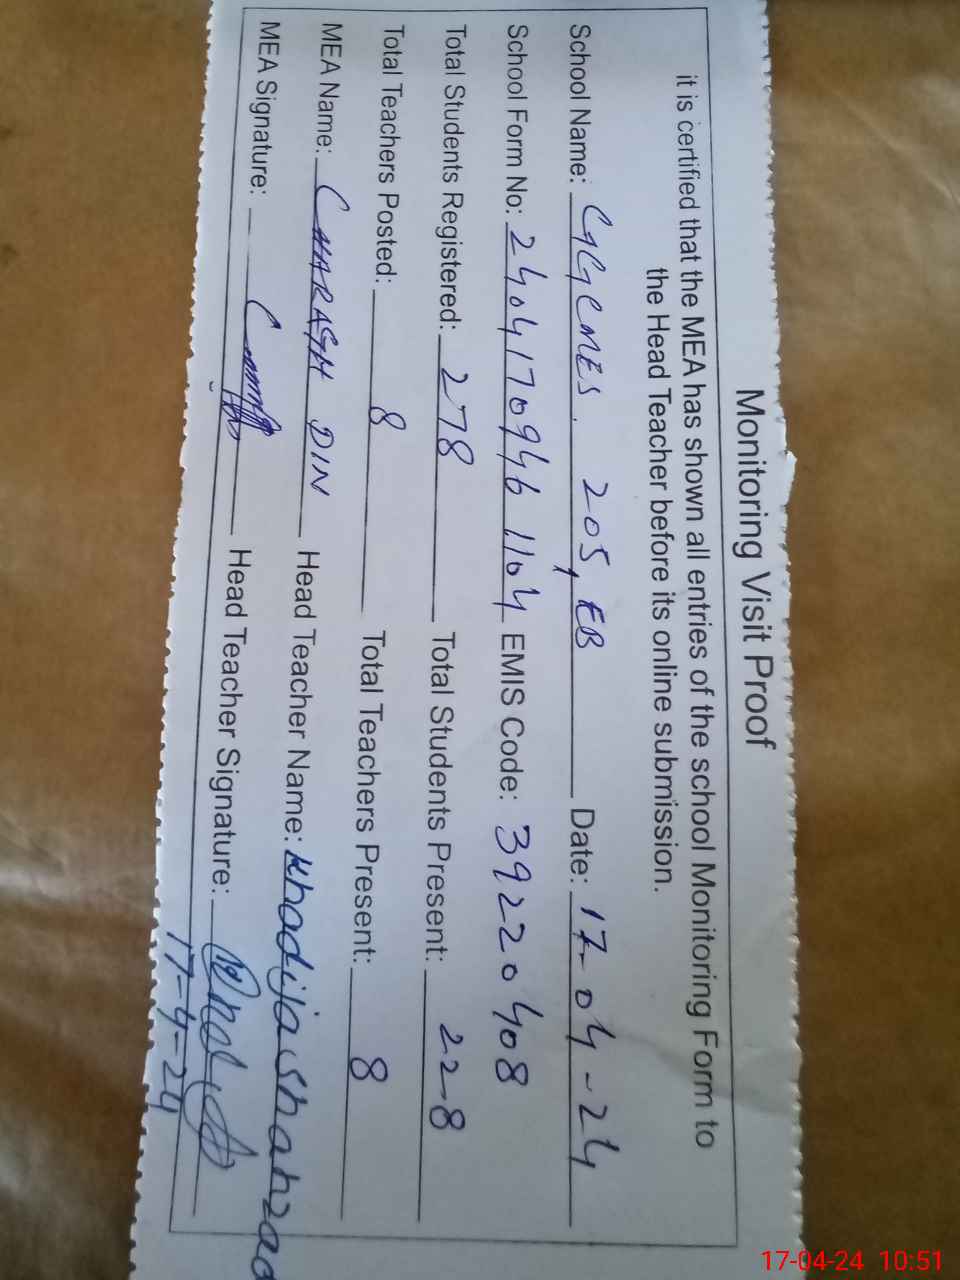 Monitoring Visit Proof
it is certified that the MEA has shown all entries of the school Monitoring Form to
the Head Teacher before its online submission.
School Name: GGCMES. 205, EB Date: 17-04-24
School Form No: 2404170946 1104 EMIS Code: 39220408
Total Students Registered: 278 Total Students Present: 228
Total Teachers Posted: 8 Total Teachers Present: 8
MEA Name: CHARAGH DIN Head Teacher Name: Khadija Shahzad
MEA Signature: Head Teacher Signature:
17-4-24
17-04-24 10:51